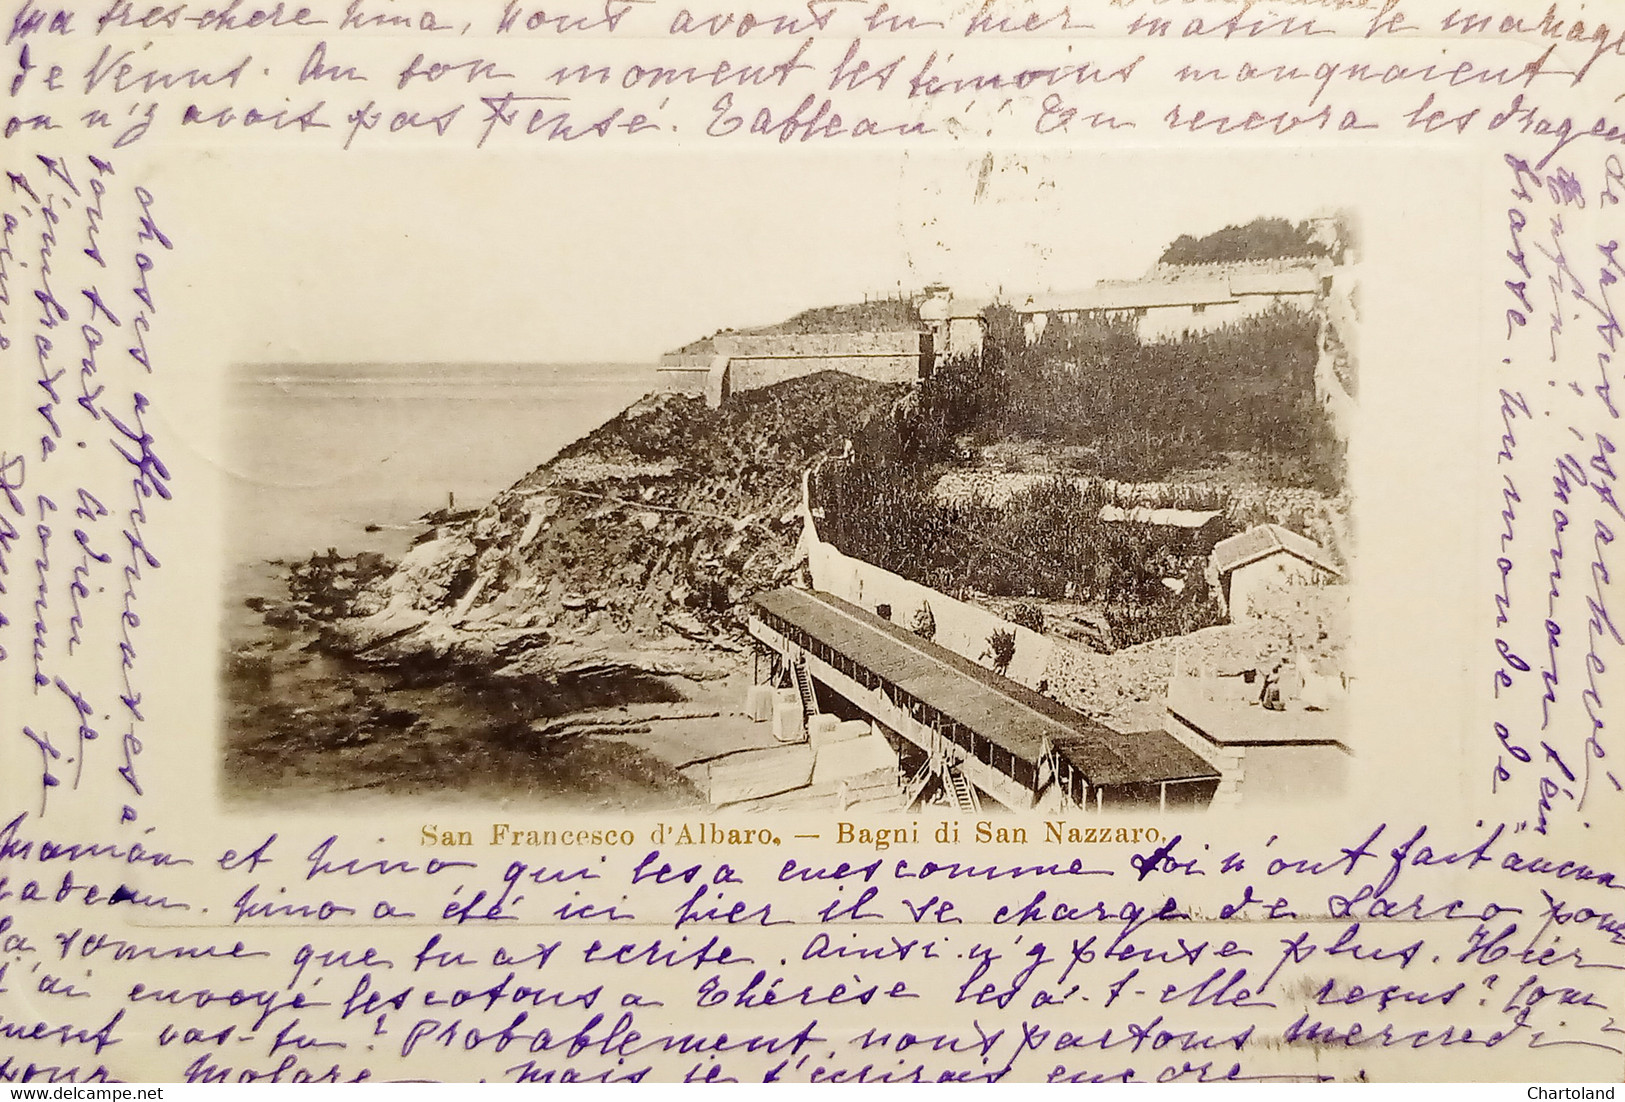 Ma très chère Nina, Nous avons eu hier matin le mariage
de Vénus. Au bon moment les témoins manquaient,
on n'y avait pas pensé. Tableau!! On recevra les dragées
de
tapis est achevé
Enfin!, Maman t'em
brasse. Un monde de
choses affectueuses à
tous tous. Adieu je
t'embrasse comme je
t'aime
San Francesco d'Albaro. — Bagni di San Nazzaro.
Maman et Nino qui les a eues comme toi n'ont fait aucun
cadeau. Nino a été ici hier il se charge de Sarco pour
la somme que tu as ecrite. Ainsi n'y pense plus. Hier
j'ai envoyé les cotons a Thérèse les a-t-elle reçus? Com-
ment vas-tu? Probablement, nous partons mercredi
pour Molare, mais je t'écrirais encore.
Chartoland